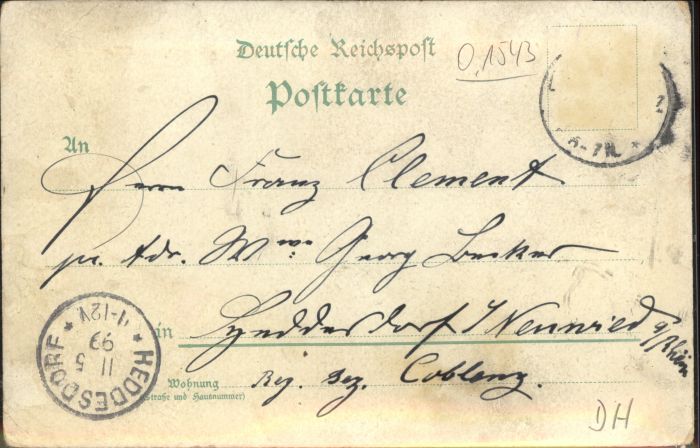 Deutsche Reichspost
0,1543
Postkarte
Z
6-7N. *
An
Herrn Franz Clement
pr. Adr. Wwe. Georg Becker
in Heddesdorf / Neuwied a/Rhein
Wohnung
(Straße und Hausnummer)
Rej. Bez. Coblenz.
* HEDDESDORF *
11 5
99
11-12V
DH